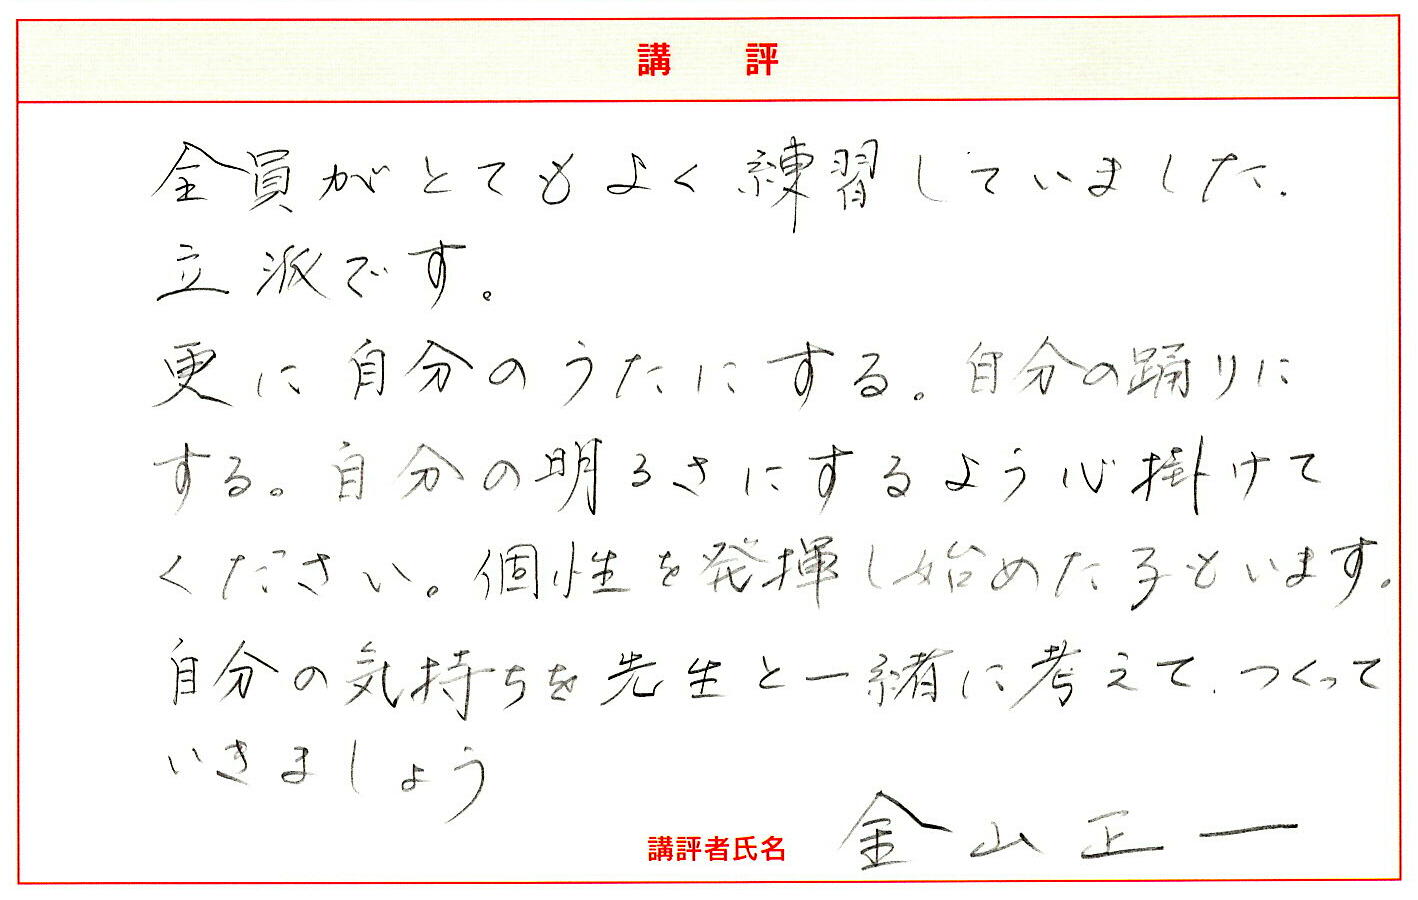 講　評
全員がとてもよく練習していました.
立派です。
更に自分のうたにする。自分の踊りに
する。自分の明るさにするよう心掛けて
ください。個性を発揮し始めた子もいます。
自分の気持ちを先生と一緒に考えて、つくって
いきましょう
講評者氏名 金山正一